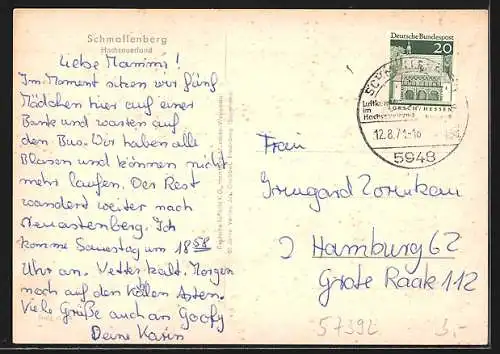 Schmallenberg
Hochsauerland
Liebe Mammi!
Im Moment sitzen wir fünf
Mädchen hier auf einer
Bank und warten auf
den Bus. Wir haben alle
Blasen und können nicht
mehr laufen. Der Rest
wandert weiter nach
Neuastenberg. Ich
komme Samstag um 18 58
Uhr an. Wetter kalt. Morgen
noch auf den Kahlen Asten.
Viele Grüße auch an Goofy
Deine Karin
Deutsche Bundespost
20
LORSCH/HESSEN
Luftkurort
im
Hochsauerland
12.8.71-16
5948
Frau
Irmgard
Hamburg 62
Grote Raak 112
57392
3,-